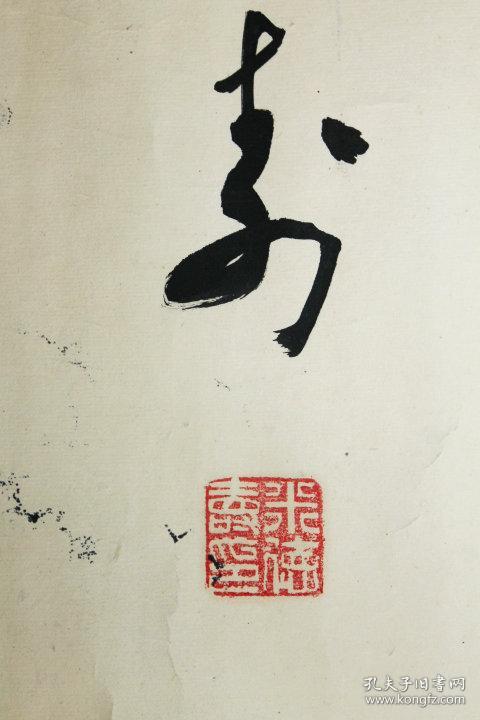 寿
米德
壽印
孔夫子旧书网
www.kongfz.com